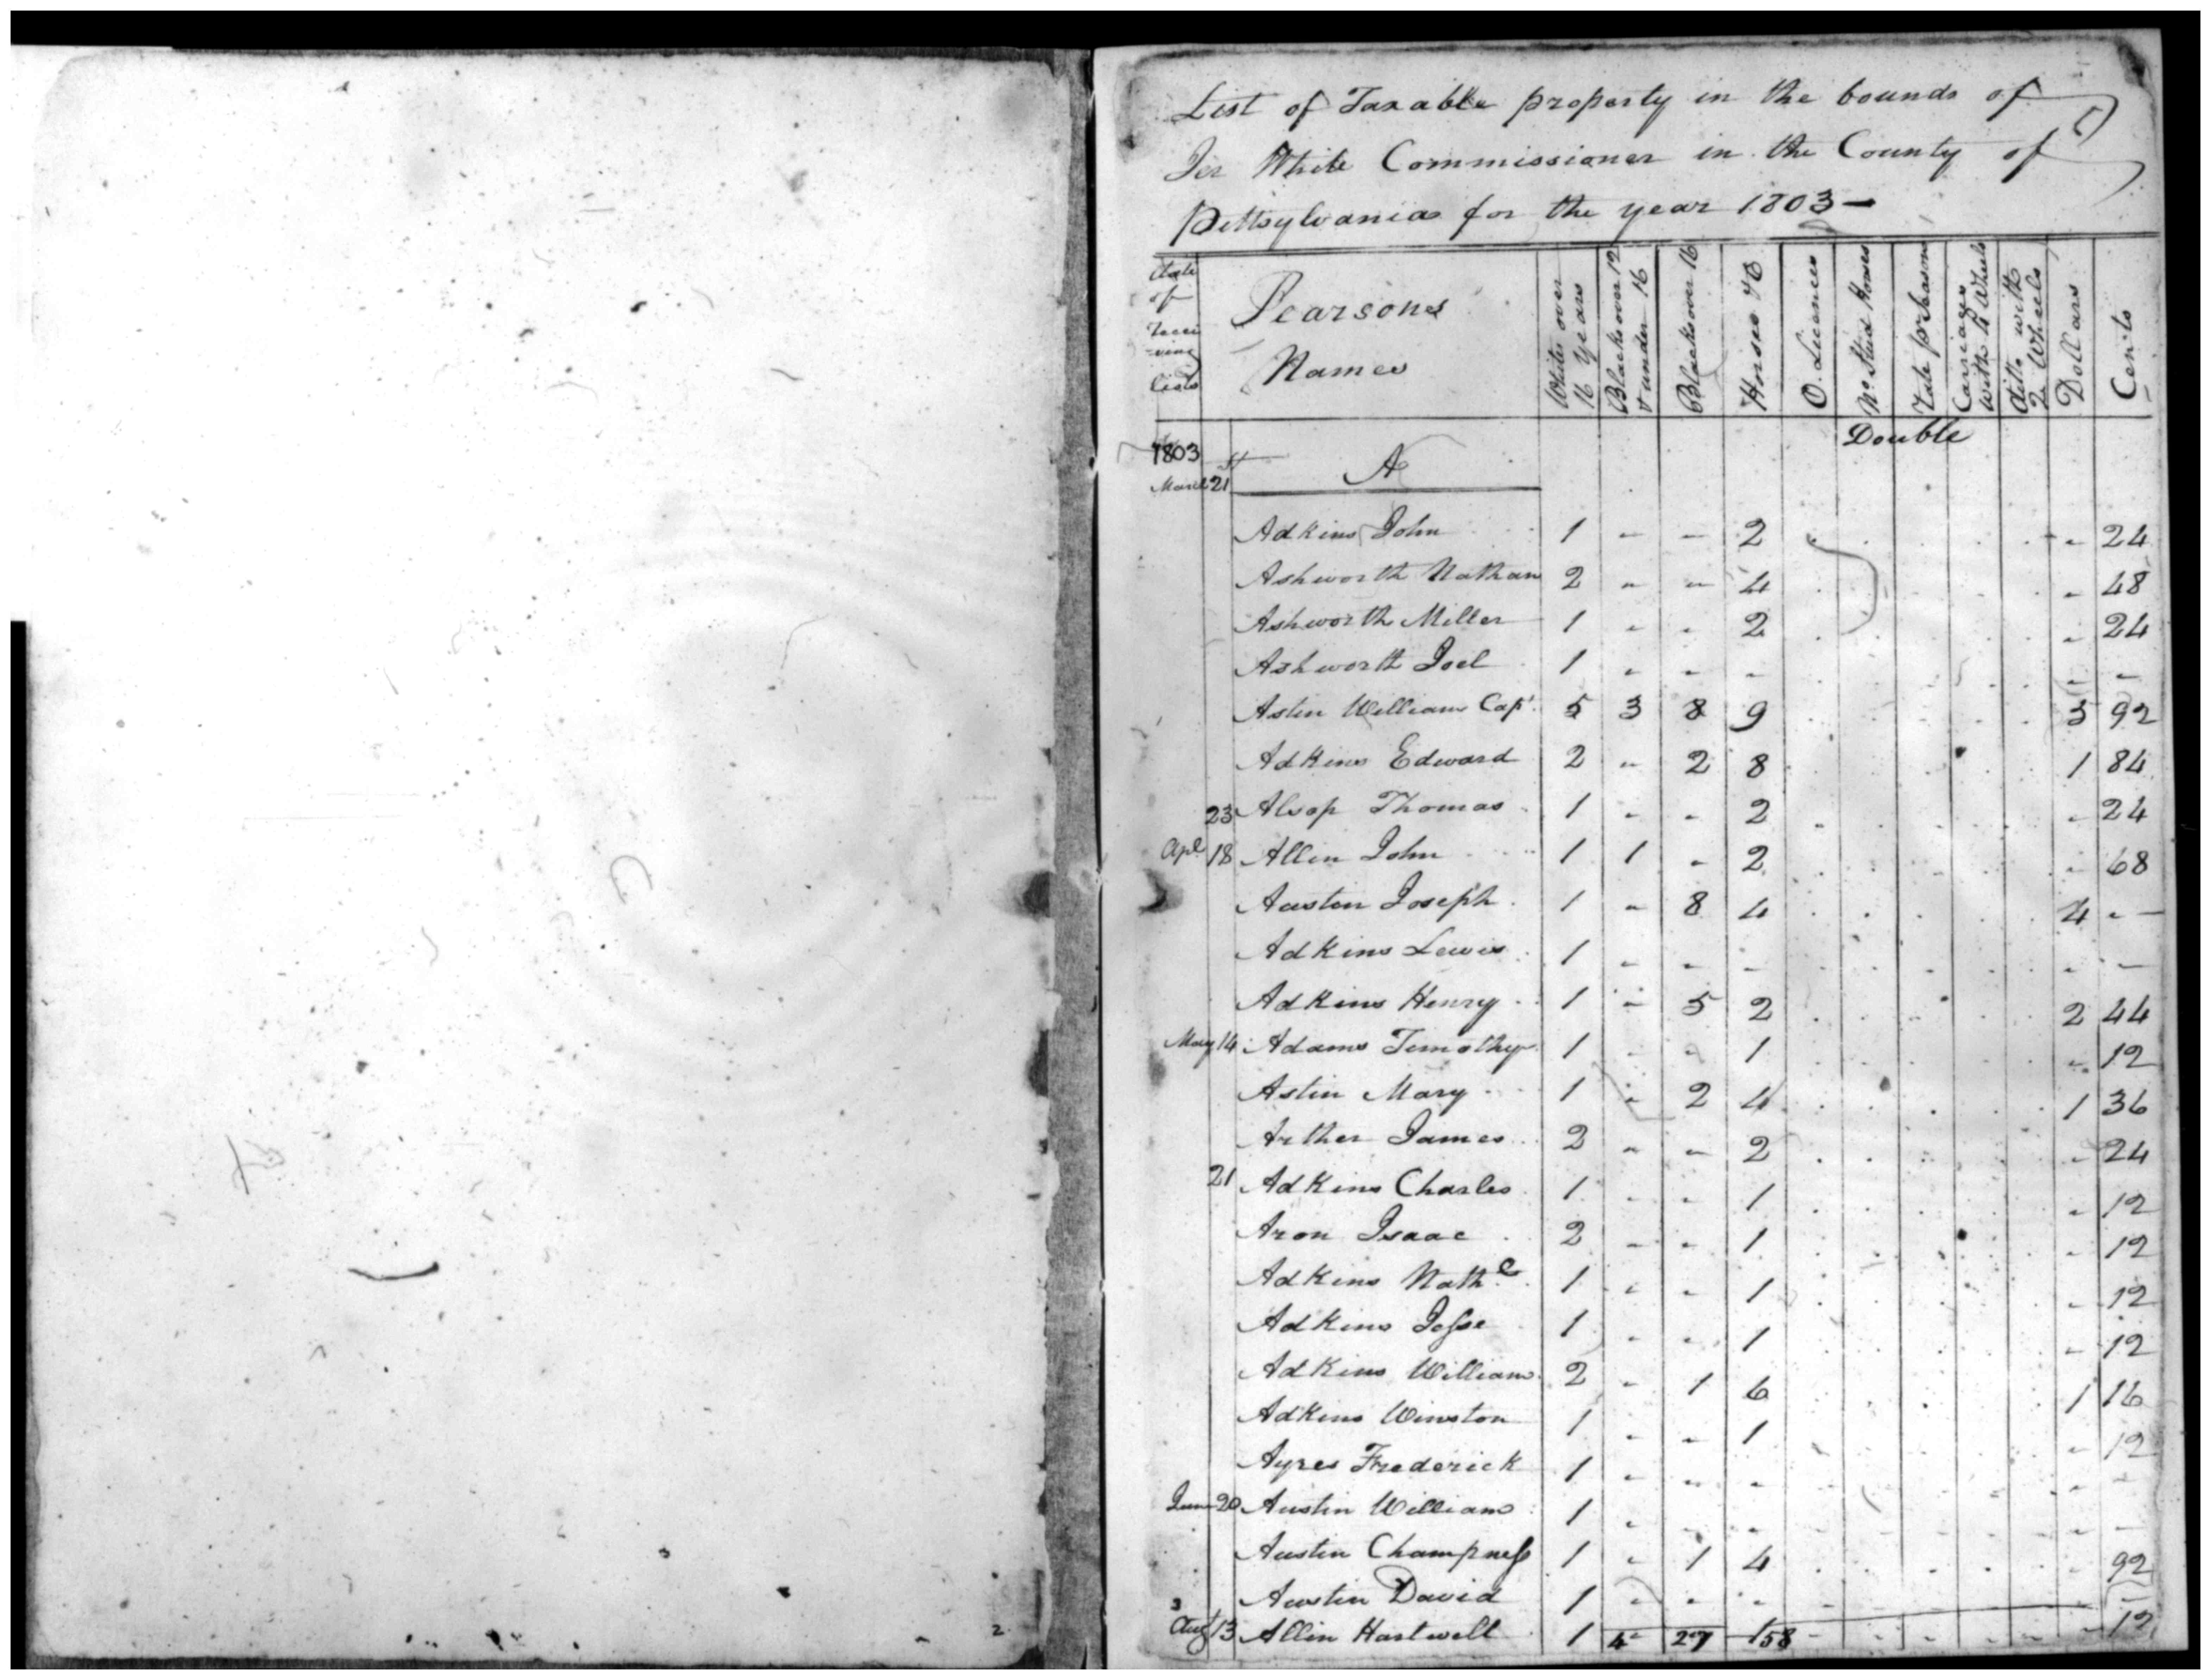 List of Taxable property in the bounds of
Jer White Commissioner in the County of
Pittsylvania for the year 1803 —
Date of recei-ving lists | Pearsons Names | Whites over 16 Years | Blacks over 12 & under 16 | Blacks over 16 | Horses &C | O. Licences | No Stud Horses | Rate pr Season | Carriages with 4 Wheels | ditto with 2 Wheels | Dollars | Cents
Double
1803
March 21st A
Adkins John 1 - - 2 - 24
Ashworth Nathan 2 - - 4 - 48
Ashworth Miller 1 - - 2 - 24
Ashworth Joel 1 - - - - -
Astin William Capt. 5 3 8 9 92
Adkins Edward 2 - 2 8 1 84
23 Alsop Thomas 1 - - 2 - 24
Apl 18 Allin John 1 1 - 2 - 68
Austin Joseph 1 - 8 4 4 - -
Adkins Lewis 1 - - - - -
Adkins Henry 1 - 5 2 2 44
May 14 Adams Timothy 1 - - 1 - 12
Astin Mary 1 - 2 4 1 36
Arther James 2 - - 2 - 24
21 Adkins Charles 1 - - 1 - 12
Aron Isaac 2 - - 1 - 12
Adkins Nathl 1 - - 1 - 12
Adkins Jesse 1 - - 1 - 12
Adkins William 2 - 1 6 1 16
Adkins Winston 1 - - 1 - 12
Ayres Frederick 1 - - - - -
June 20 Austin William 1 - - - - -
Austin Champness 1 - 1 4 - 92
Austin David 1 - - - - -
Augt 13 Allin Hartwell 1 4 27 58 - 12